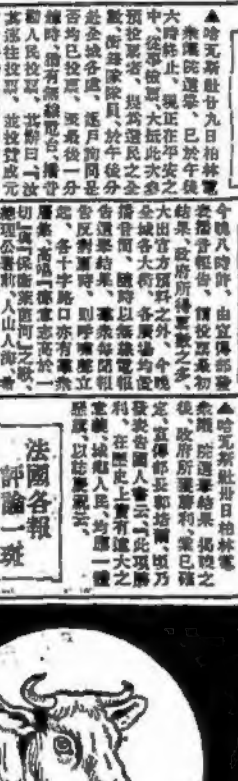 ▲哈瓦斯社廿九日柏林電
衆議院選舉、已於午後
六時終止、現正在平安之
中、從事檢票、大抵此次參
預投票者、與英選民之全
數、衝鋒隊隊員、於午後分
赴全城各處、逐戶詢問是
否均已投票、
播有無線電台、播音
勸人民投票、其辭曰、「汝
其速往投票、並投贊成元
今晚八時許、由宣傳部發
表播音報告、謂投票最初
結果、政府所得票數之多、
大出官方預料之外、今晚
全城各大街、各廣場均設
播音筒、隨時以無線電報
告選舉結果、羣衆每聞報
告反對票時、則呼嘯聲立
起、各十字路口亦有羣衆
屬集、高唱「德意志高於一
切」與「保衛萊茵河」之歌、
總理公署前、人山人海、希
▲哈瓦斯社卅日柏林電
衆議院選舉結果、揭曉之
後、政府所獲勝利、業已確
定、宣傳部長郭培爾、頃乃
發表告國人書云、「此項勝
利、在歷史上實有遠大之
意義、城鄉人民、均應一體
懸旗、以誌慶祝云、
法國各報
評論一斑